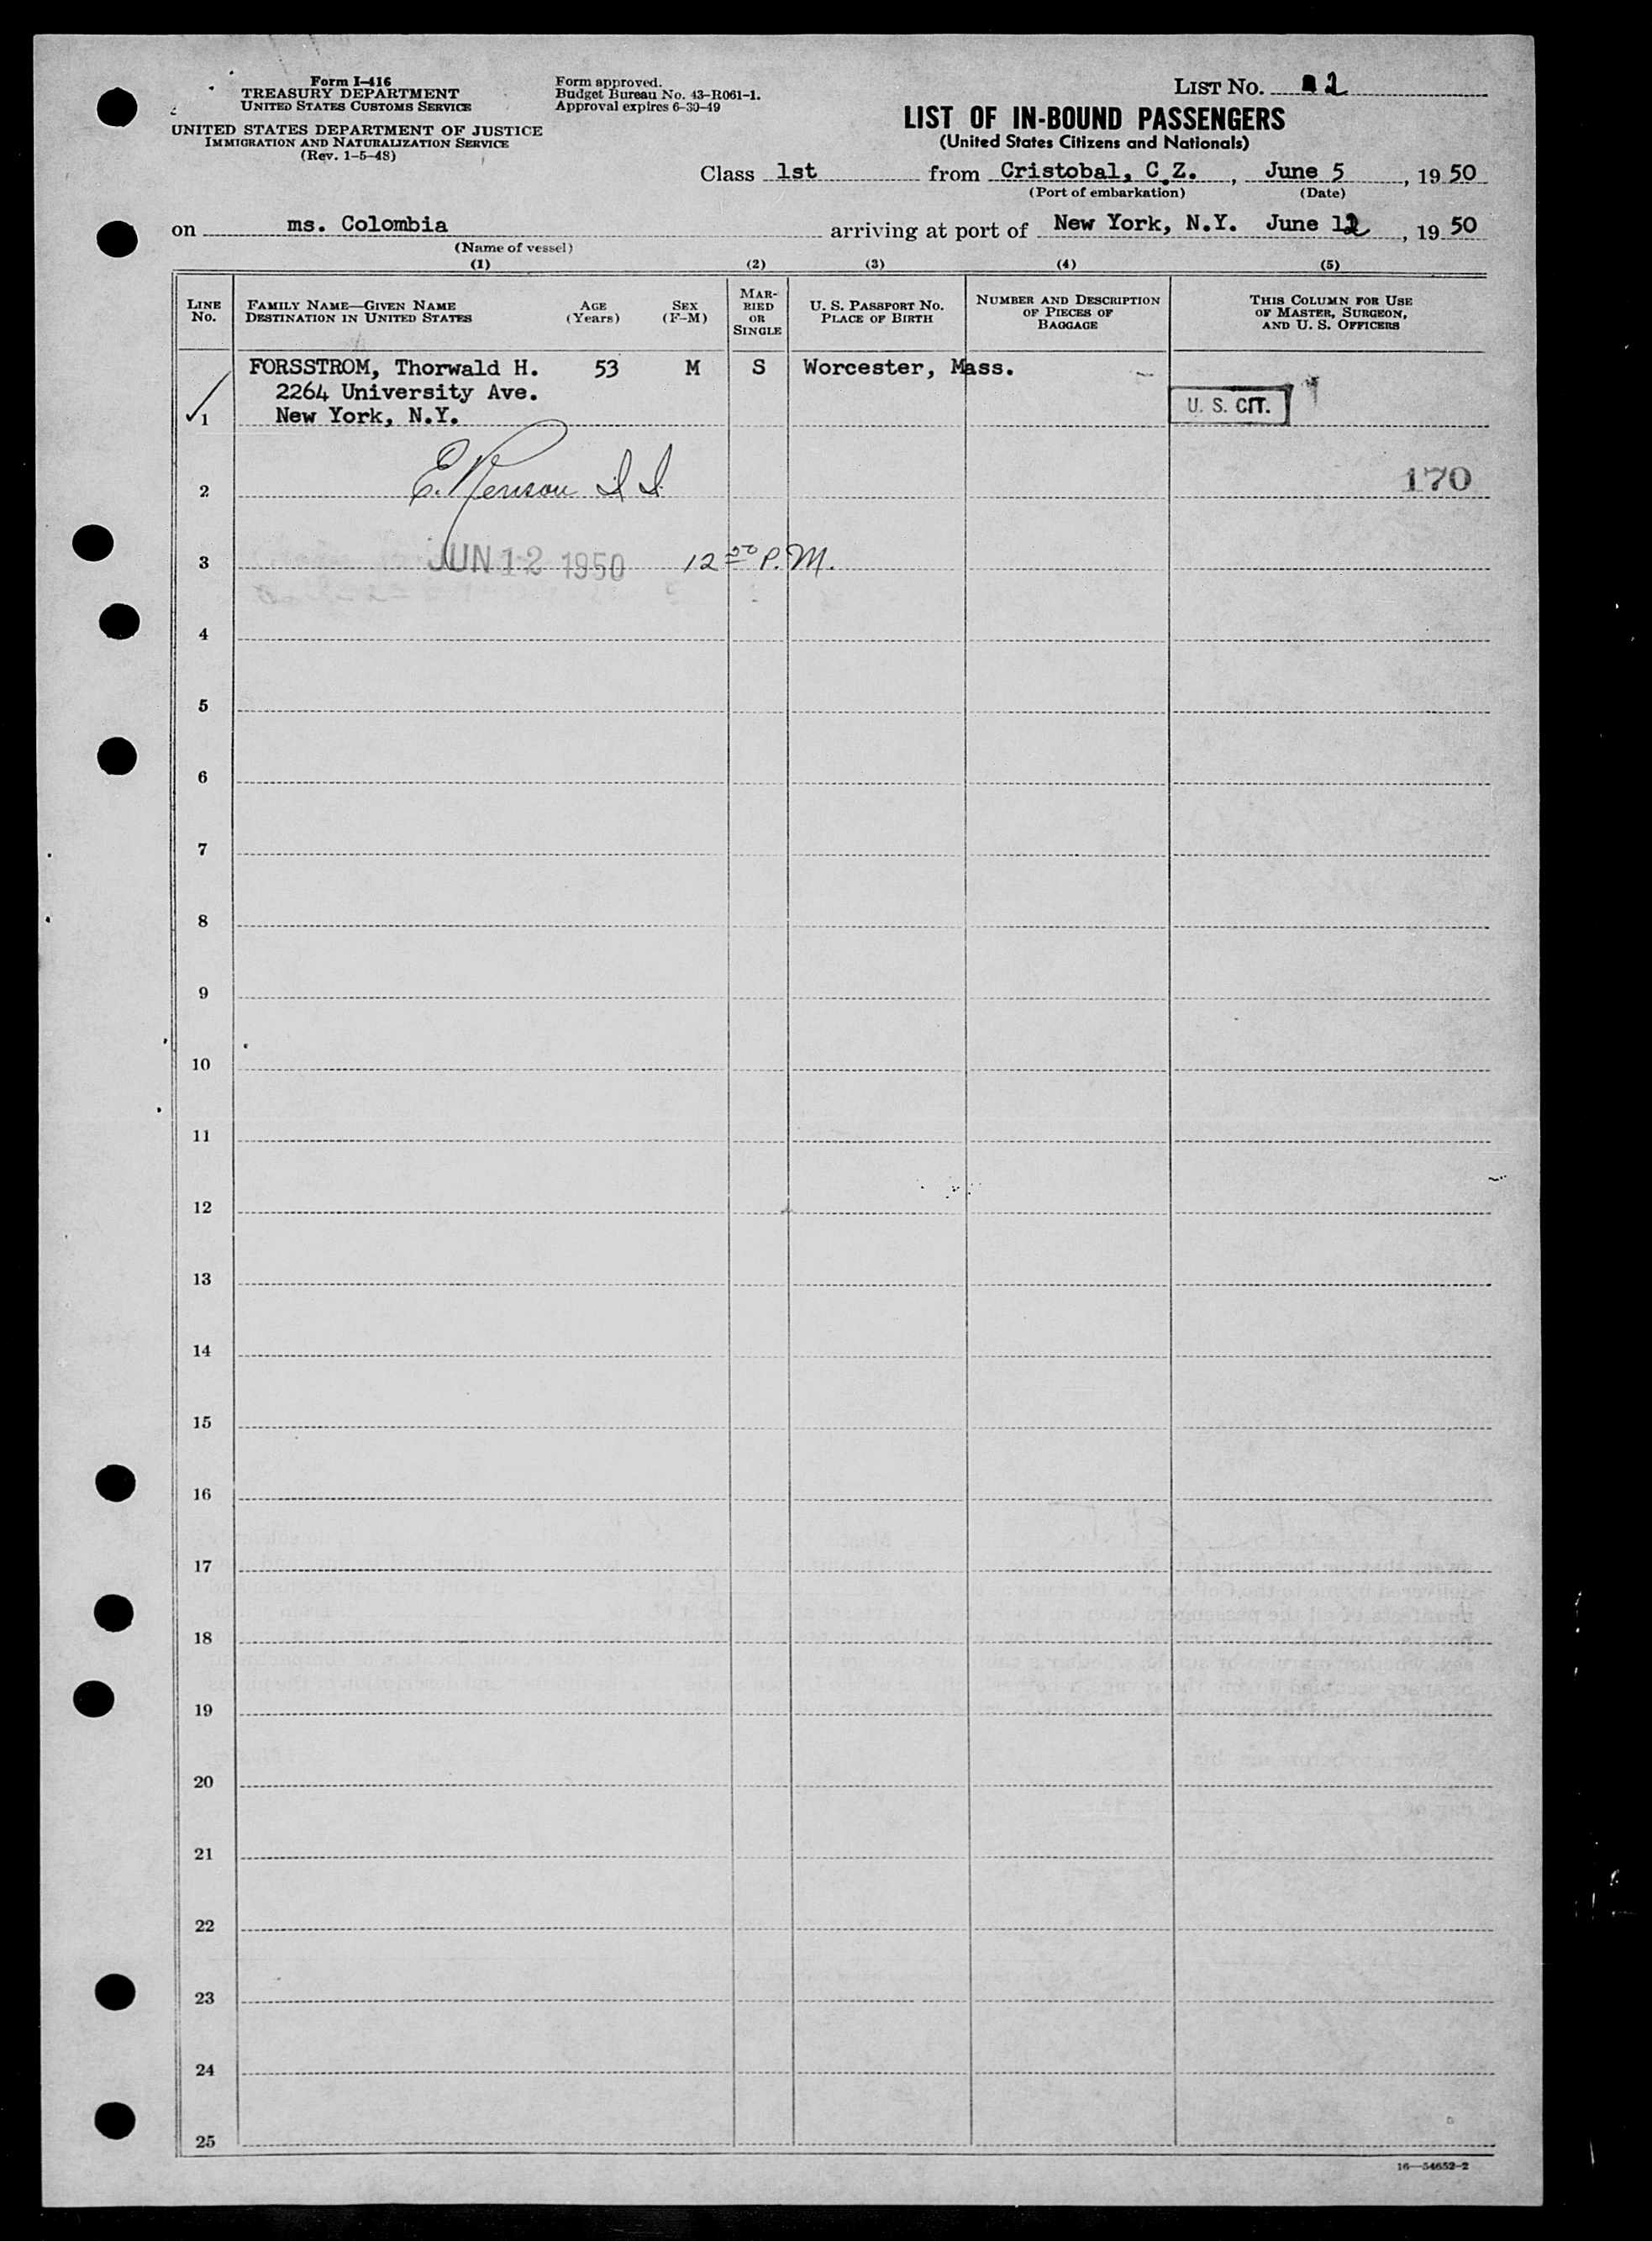 Form I-416
TREASURY DEPARTMENT
UNITED STATES CUSTOMS SERVICE
UNITED STATES DEPARTMENT OF JUSTICE
IMMIGRATION AND NATURALIZATION SERVICE
(Rev. 1-5-48)
Form approved.
Budget Bureau No. 43-R061-1.
Approval expires 6-30-49
LIST No. 2
LIST OF IN-BOUND PASSENGERS
(United States Citizens and Nationals)
Class 1st from Cristobal, C.Z., June 5, 19 50
(Port of embarkation) (Date)
on ms. Colombia arriving at port of New York, N.Y. June 12, 19 50
(Name of vessel)
(1) (2) (3) (4) (5)
LINE No.
FAMILY NAME—GIVEN NAME
DESTINATION IN UNITED STATES
AGE (Years)
SEX (F-M)
MARRIED OR SINGLE
U. S. PASSPORT NO.
PLACE OF BIRTH
NUMBER AND DESCRIPTION OF PIECES OF BAGGAGE
THIS COLUMN FOR USE OF MASTER, SURGEON, AND U. S. OFFICERS
FORSSTROM, Thorwald H. 53 M S Worcester, Mass.
2264 University Ave.
1 New York, N.Y. U. S. CIT.
2 170
3 JUN 12 1950 12 P.M.
4
5
6
7
8
9
10
11
12
13
14
15
16
17
18
19
20
21
22
23
24
25
16—54652-2